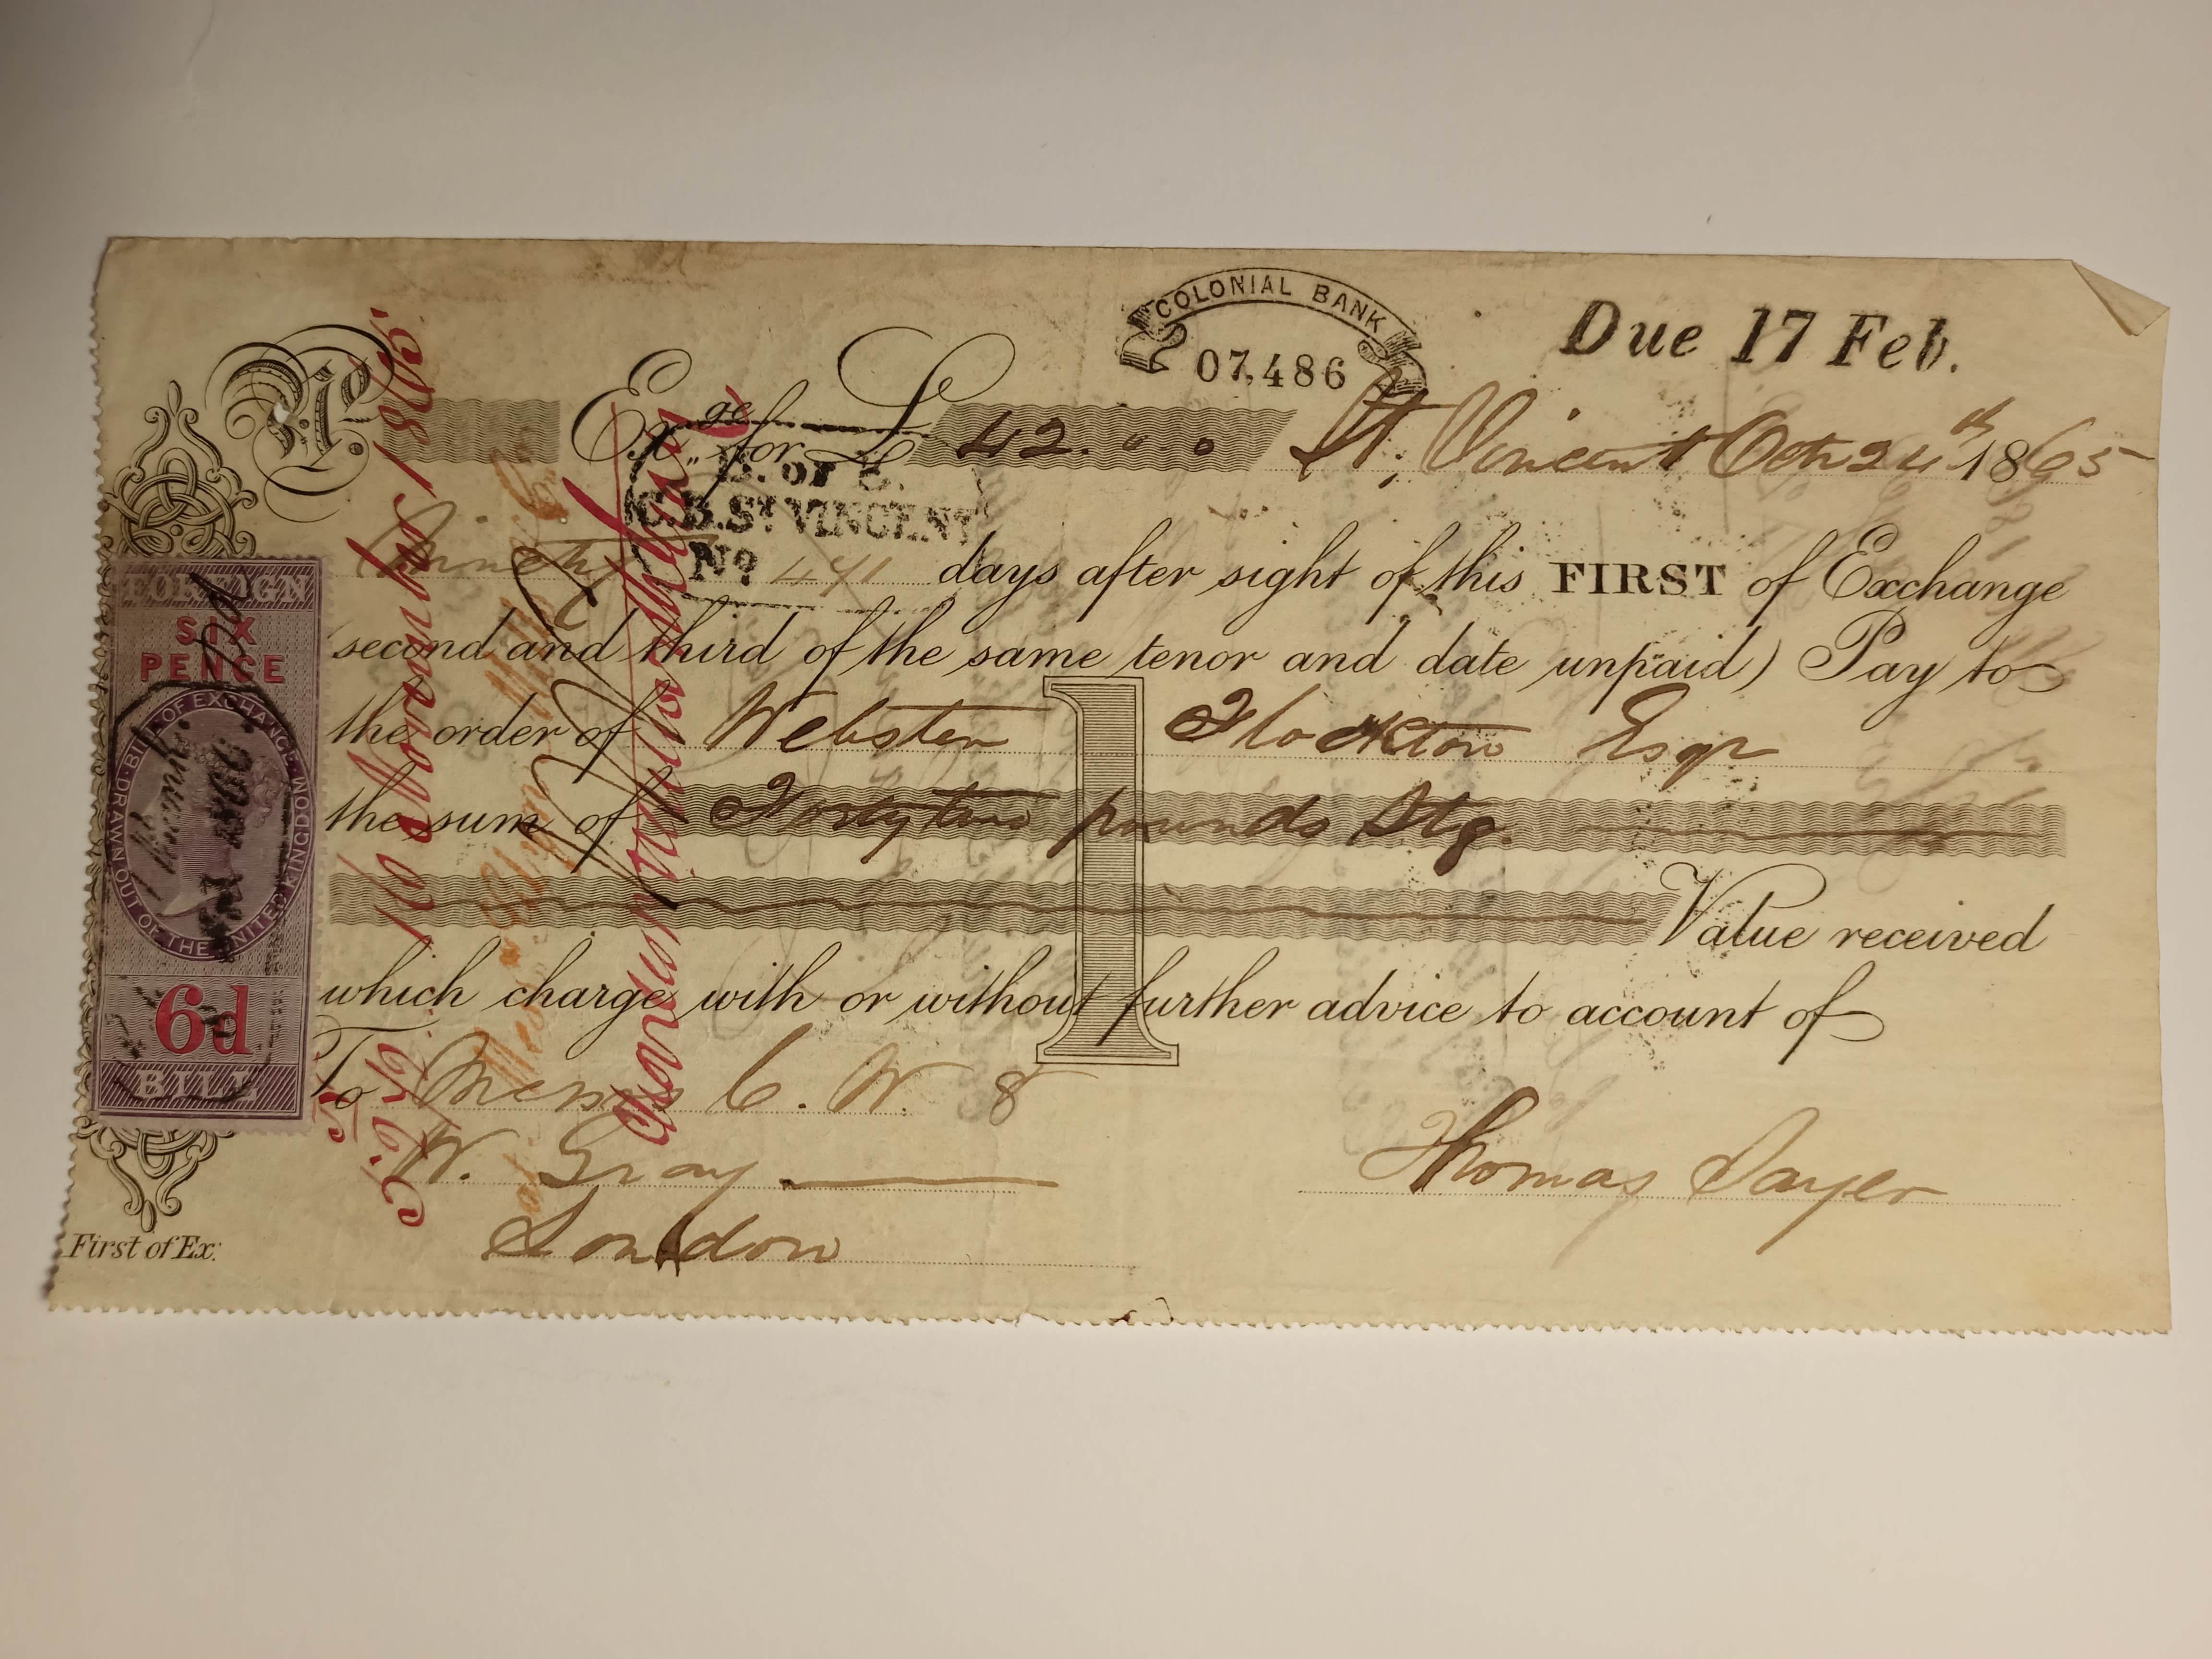 COLONIAL BANK
07,486
Due 17 Feb.
No Exge for £ 42. " " St. Vincent Oct 24th 1865
B. of E.
C.B. ST VINCENT
No 441
Ninety days after sight of this FIRST of Exchange
second and third of the same tenor and date unpaid) Pay to
the order of Webster Flockton Esqr
the sum of Forty two pounds Stg.
Value received
which charge with or without further advice to account of
To Messrs C. W. &
W. Gray
London
Thomas Sayer
First of Ex:
FOREIGN
SIX
PENCE
BILL OF EXCHANGE DRAWN OUT OF THE UNITED KINGDOM
6d
BILL
16 November 1865